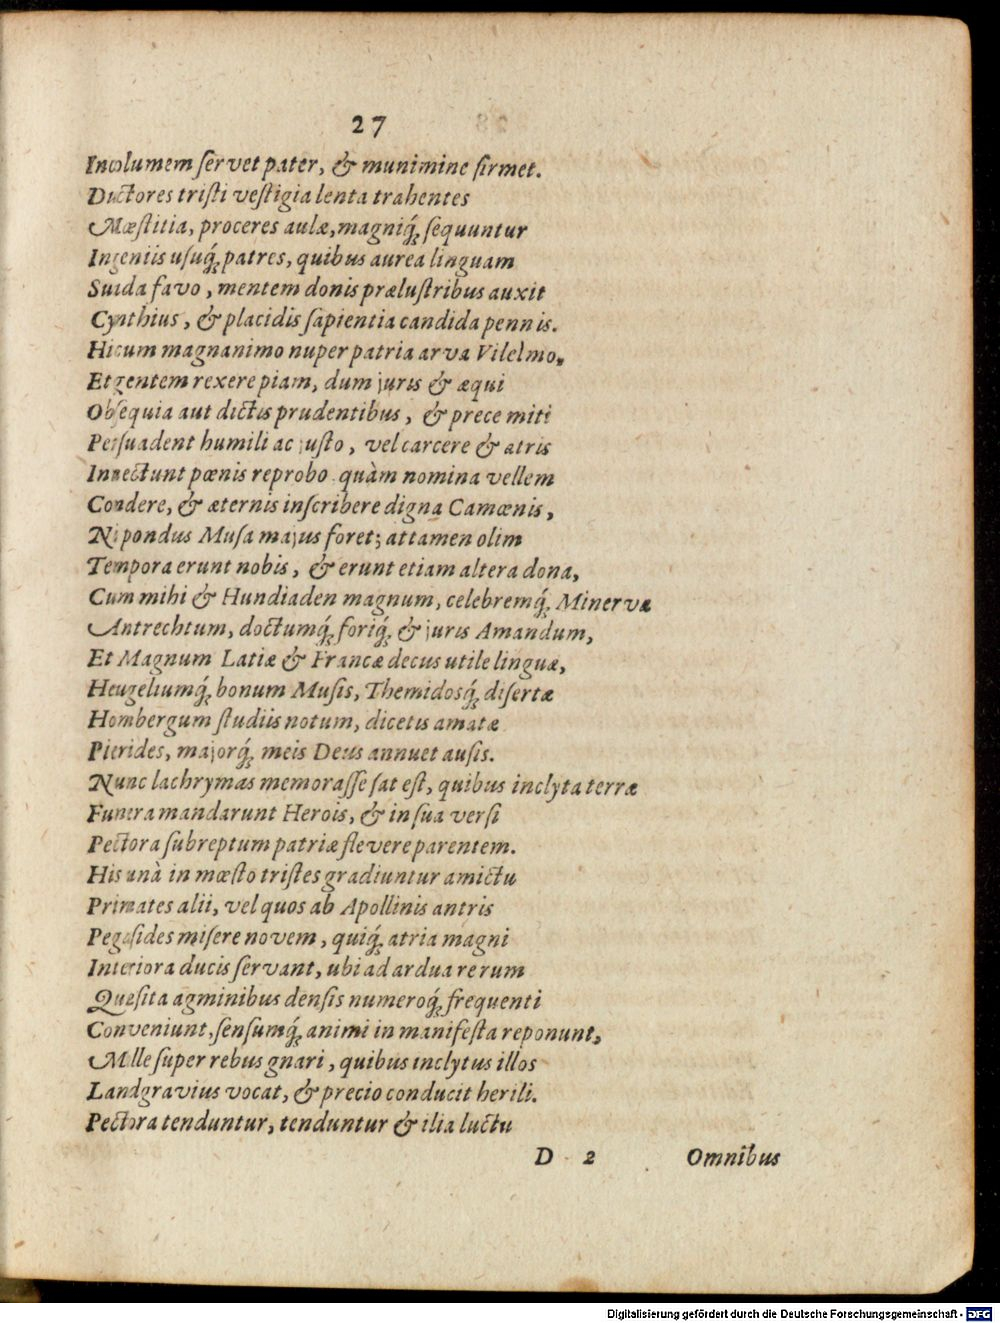 27
Incolumem ſervet pater, & munimine firmet.
Ductores triſti veſtigia lenta trahentes
Mœſtitia, proceres aulæ, magniq́; ſequuntur
Ingeniis uſuq́; patres, quibus aurea linguam
Suada favo, mentem donis præluſtribus auxit
Cynthius, & placidis ſapientia candida pennis.
Hi cum magnanimo nuper patria arva Vilelmo,
Et gentem rexere piam, dum juris & æqui
Obſequia aut dictis prudentibus, & prece miti
Perſuadent humili ac juſto, vel carcere & atris
Innectunt pœnis reprobo. quàm nomina vellem
Condere, & æternis inſcribere digna Camœnis,
Ni pondus Muſa majus foret; attamen olim
Tempora erunt nobis, & erunt etiam altera dona,
Cum mihi & Hundiaden magnum, celebremq́; Minervæ
Antrechtum, doctumq́; foriq́; & juris Amandum,
Et Magnum Latiæ & Francæ decus utile linguæ,
Heugeliumq́; bonum Muſis, Themidosq́; diſertæ
Hombergum ſtudiis notum, dicetis amatæ
Pierides, majorq́; meis Deus annuet auſis.
Nunc lachrymas memoraſſe ſat eſt, quibus inclyta terræ
Funera mandarunt Herois, & in ſua verſi
Pectora ſubreptum patriæ flevere parentem.
His unà in mœſto triſtes gradiuntur amictu
Primates alii, vel quos ab Apollinis antris
Pegaſides miſere novem, quiq́; atria magni
Interiora ducis ſervant, ubi ad ardua rerum
Quæſita agminibus denſis numeroq́; frequenti
Conveniunt, ſenſumq́; animi in manifeſta reponunt,
Mille ſuper rebus gnari, quibus inclytus illos
Landgravius vocat, & precio conducit herili.
Pectora tenduntur, tenduntur & ilia luctu
D 2 Omnibus
Digitalisierung gefördert durch die Deutsche Forschungsgemeinschaft - DFG